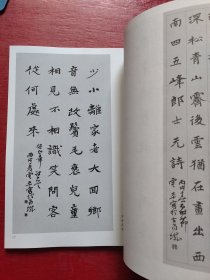 深松青山霽後雲猶在畫出西
南四五峰郎士元詩
少小離家老大回鄉
音無改鬢毛衰兒童
相見不相識笑問客
從何處來